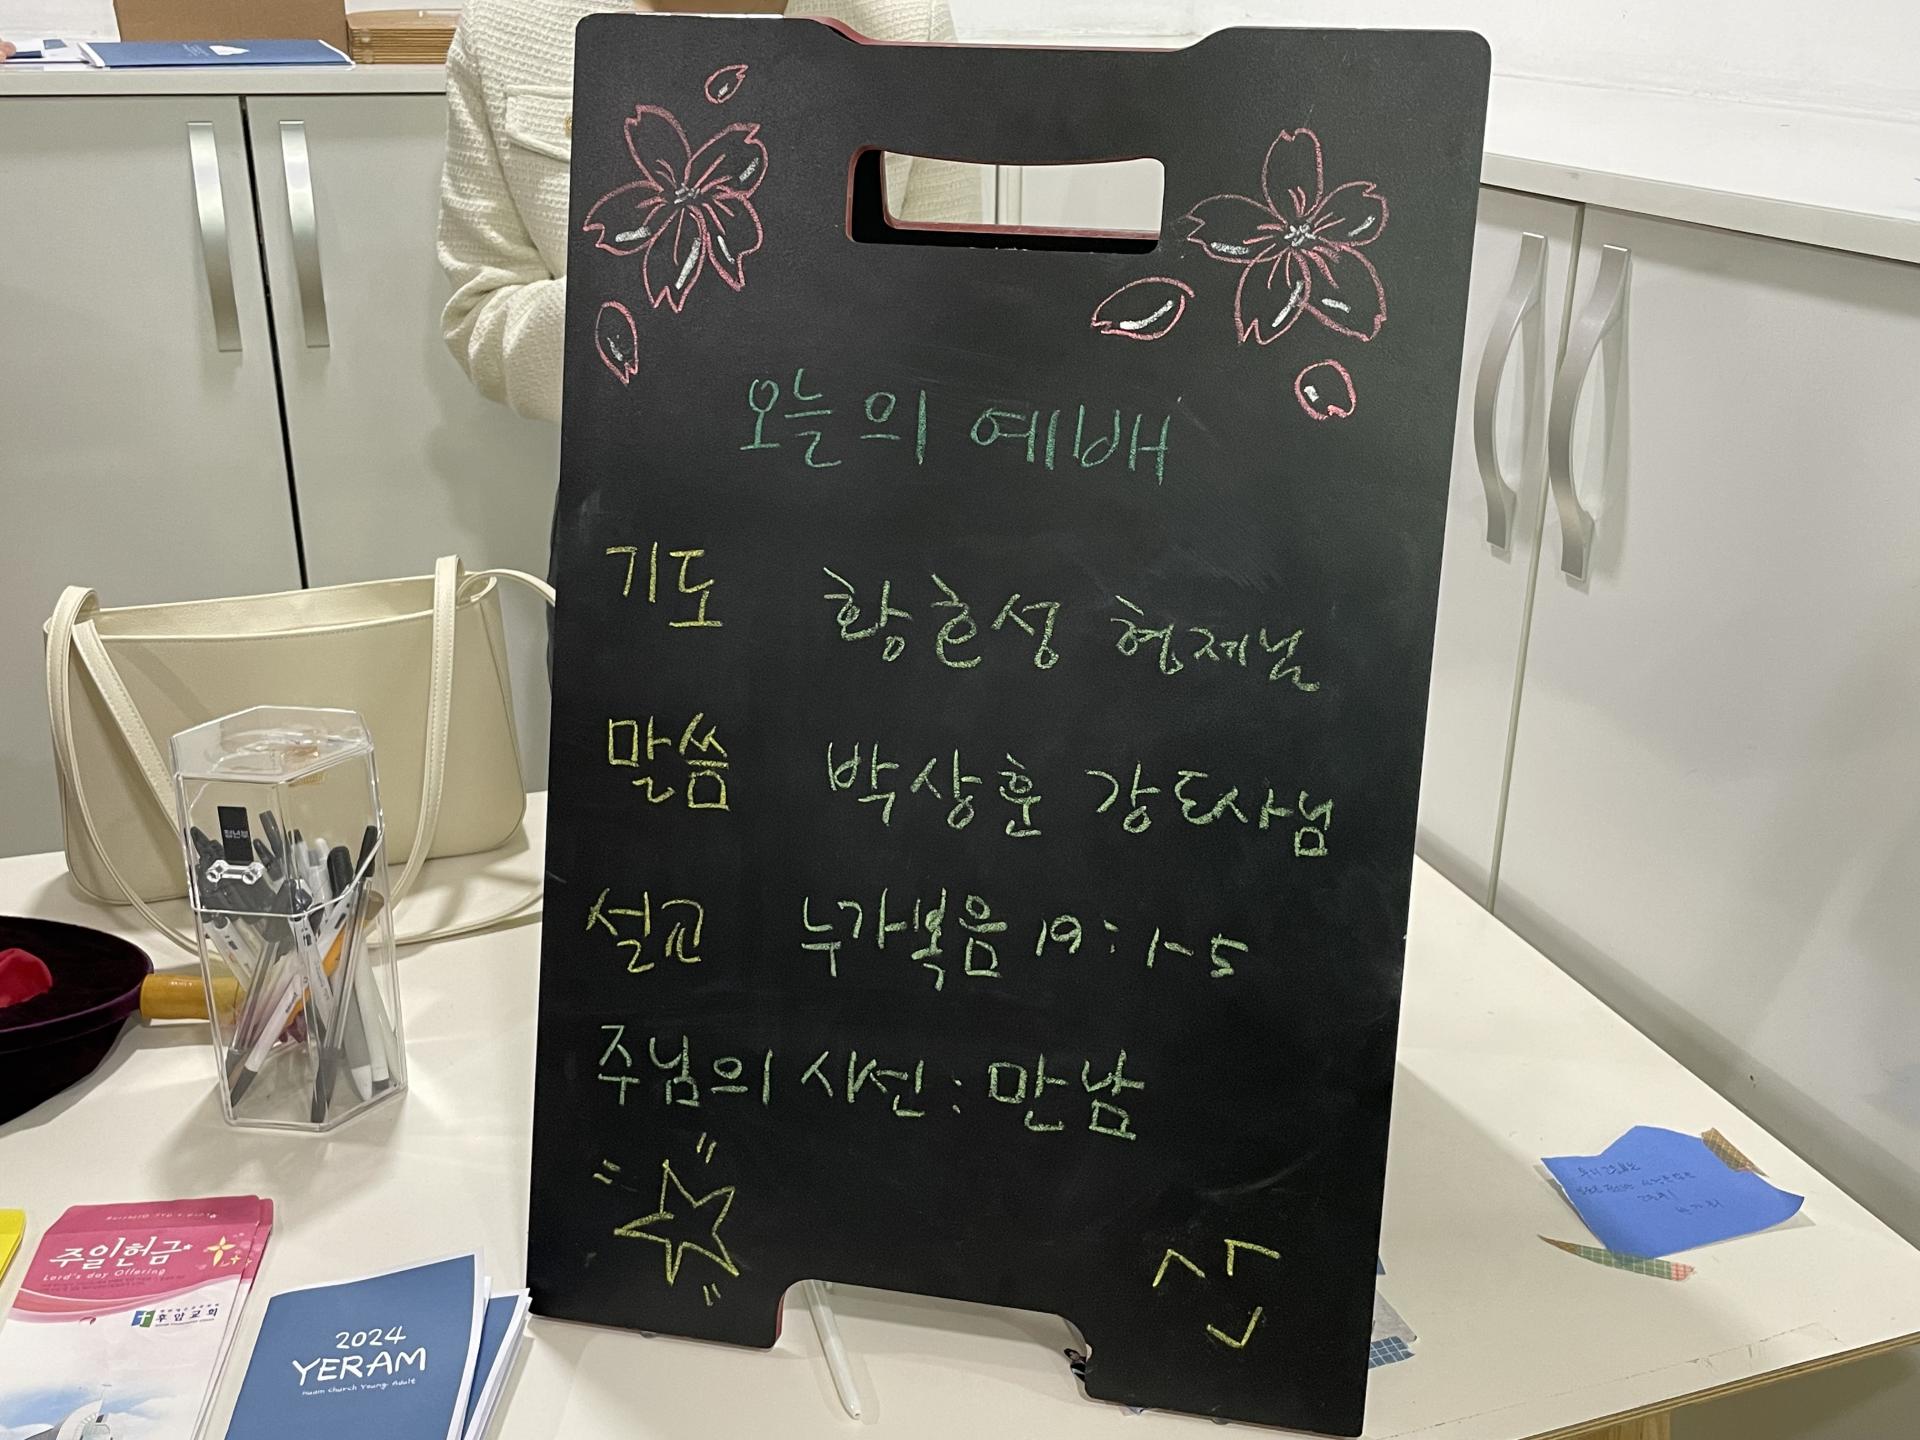 오늘의 예배
기도 황호성 형제님
말씀 박상훈 강도사님
설교 누가복음 19:1-5
주님의 시선 : 만남
청년부
주일헌금
Lord's day Offering
후암교회
2024
YERAM
Huam Church Young Adult